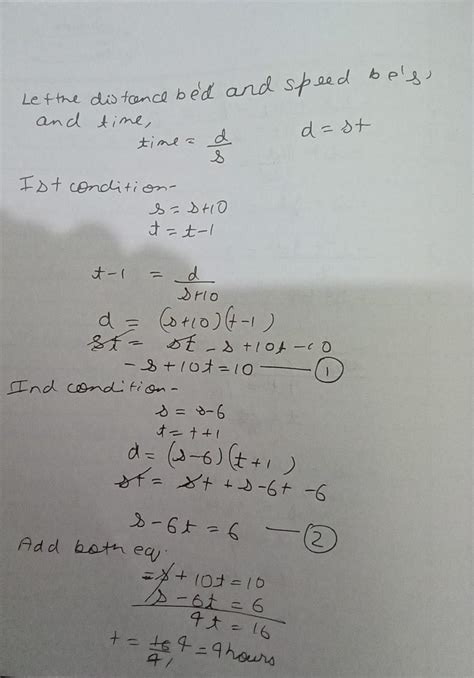 Let the distance be'd' and speed be's,
and time,
time = d/s d = st
Ist condition-
s = s+10
t = t-1
t-1 = d/s+10
d = (s+10)(t-1)
st = st - s + 10t - 10
-s + 10t = 10 — ①
IInd condition-
s = s-6
t = t+1
d = (s-6)(t+1)
st = st + s - 6t - 6
s - 6t = 6 — ②
Add both eq.
-s + 10t = 10
s - 6t = 6
4t = 16
t = 16/4 4 = 4 hours